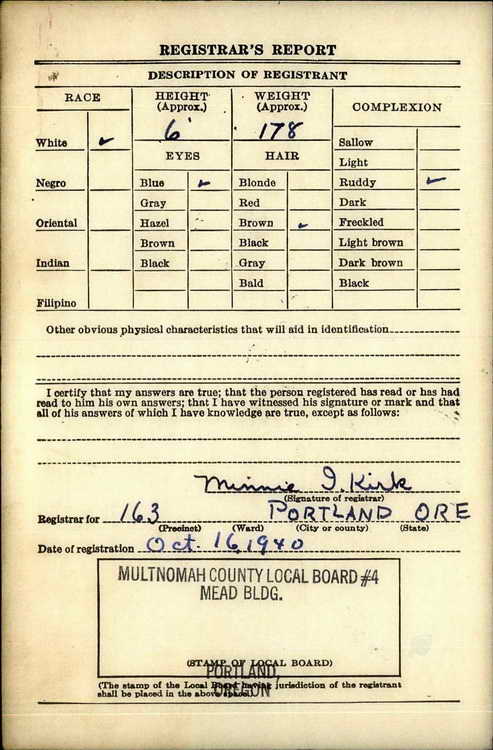 REGISTRAR'S REPORT
DESCRIPTION OF REGISTRANT
RACE
HEIGHT
(Approx.)
WEIGHT
(Approx.)
COMPLEXION
6'
178
White ✓
EYES
HAIR
Sallow
Light
Negro
Blue ✓
Blonde
Ruddy ✓
Gray
Red
Dark
Oriental
Hazel
Brown ✓
Freckled
Brown
Black
Light brown
Indian
Black
Gray
Dark brown
Bald
Black
Filipino
Other obvious physical characteristics that will aid in identification
I certify that my answers are true; that the person registered has read or has had
read to him his own answers; that I have witnessed his signature or mark and that
all of his answers of which I have knowledge are true, except as follows:
Minnie I. Kirk
(Signature of registrar)
Registrar for 163 PORTLAND ORE
(Precinct) (Ward) (City or county) (State)
Date of registration Oct. 16, 1940
MULTNOMAH COUNTY LOCAL BOARD #4
MEAD BLDG.
(STAMP OF LOCAL BOARD)
PORTLAND,
(The stamp of the Local Board having jurisdiction of the registrant
OREGON
shall be placed in the above space.)